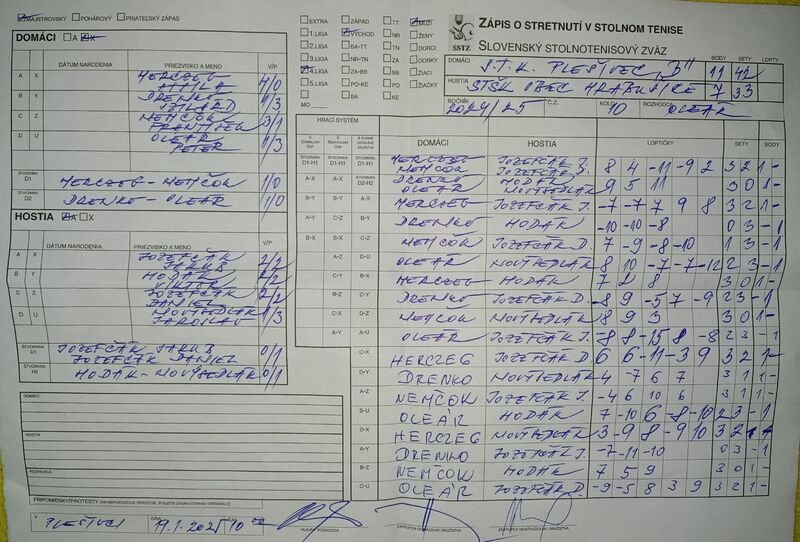 MAJSTROVSKÝ POHÁROVÝ PRIATEĽSKÝ ZÁPAS
DOMÁCI A X
DÁTUM NARODENIA PRIEZVISKO A MENO V/P
A X HERCZEG ATTILA 4/0
B Y DRENKO 1/3
C Z NEMČOK FRANTIŠEK 3/1
D U OLEÁR PETER 1/3
ŠTVORHRA D1 HERCZEG - NEMČOK 1/0
D2 DRENKO - OLEÁR 1/0
HOSTIA A X
DÁTUM NARODENIA PRIEZVISKO A MENO V/P
A X JOZEFČÁK JAKUB 2/2
B Y HODÁK VIKTOR 2/2
C Z JOZEFČÁK DANIEL 2/2
D U NOVYSEDLÁK JAROSLAV 1/3
ŠTVORHRA H1 JOZEFČÁK JAKUB JOZEFČÁK DANIEL 0/1
ŠTVORHRA H2 HODÁK - NOVYSEDLÁK 0/1
DOMÁCI
HOSTIA
ROZHODCA
PRIPOMIENKY/PROTESTY
V PLEŠIVCI DŇA 19.1.2025
HLAVNÝ ROZHODCA
ZÁSTUPCA DOMÁCEHO DRUŽSTVA
ZÁSTUPCA HOSŤUJÚCEHO DRUŽSTVA
EXTRA ZÁPAD TT MUŽI
1.LIGA VÝCHOD NR ŽENY
2.LIGA BA-TT TN DORCI
3.LIGA NR-TN ZA DORKY
4.LIGA ZA-BB BB ŽIACI
5.LIGA PO-KE PO ŽIAČKY
MO BA KE
SSTZ
ZÁPIS O STRETNUTÍ V STOLNOM TENISE
SLOVENSKÝ STOLNOTENISOVÝ ZVÄZ
BODY SETY LOPTY
DOMÁCI S.T.K. PLEŠIVEC "B" 11 42
HOSTIA STŠK OBEC HRABUŠICE 7 33
ROČNÍK 2024/25 Č.Z. KOLO 10 ROZHODCA OLEÁR
HRACÍ SYSTÉM
DOMÁCI HOSTIA LOPTIČKY SETY BODY
D1-H1 D1-H1 D1-H1 HERCZEG NEMČOK JOZEFČÁK J. JOZEFČÁK D. 8 4 -11 -9 2 3 2 1 -
A-X A-X D2-H2 DRENKO OLEÁR HODÁK NOVYSEDLÁK 9 5 11 3 0 1 -
B-Y B-Y A-X HERCZEG JOZEFČÁK J. -7 -7 7 9 8 3 2 1 -
A-Y C-Z B-Y DRENKO HODÁK -10 -10 -8 0 3 - 1
B-X B-X C-Z NEMČOK JOZEFČÁK D. 7 -9 -8 -10 1 3 - 1
A-Z D-U OLEÁR NOVYSEDLÁK 8 10 -7 -7 -12 2 3 - 1
C-Y A-Y HERCZEG HODÁK 7 2 8 3 0 1 -
B-Z B-Z DRENKO JOZEFČÁK D. -8 9 -5 7 -9 2 3 - 1
C-X C-U NEMČOK NOVYSEDLÁK 8 9 3 3 0 1 -
A-Y OLEÁR JOZEFČÁK J. -8 8 -15 8 -8 2 3 - 1
C-X HERCZEG JOZEFČÁK D. 6 6 -11 -3 9 3 2 1 -
D-Y DRENKO NOVYSEDLÁK 4 -7 6 7 3 1 1 -
A-Z NEMČOK JOZEFČÁK J. -4 6 10 6 3 1 1 -
B-U OLEÁR HODÁK 7 -10 6 -8 -10 2 3 - 1
D-X HERCZEG NOVYSEDLÁK 3 -9 8 -9 10 3 2 1
A-Y DRENKO JOZEFČÁK J. -7 -11 -10 0 3 - 1
B-Z NEMČOK HODÁK 7 5 9 3 0 1 -
C-U OLEÁR JOZEFČÁK D. -9 -5 8 3 9 3 2 1 -